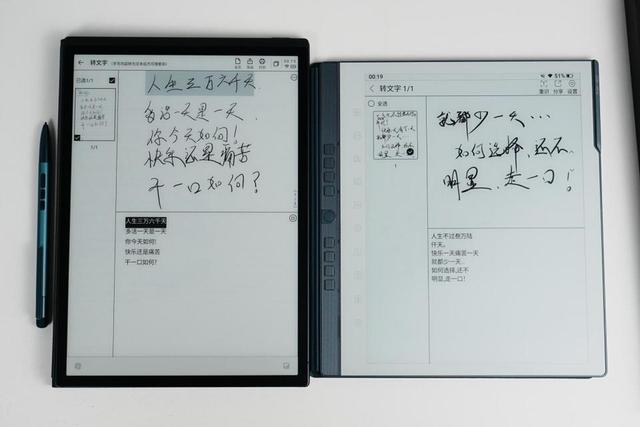 转文字
已选1/1
1/1
人生三万六千天
多活一天是一天
你今天如何!
快乐还是痛苦
干一口如何?
人生三万六千天
多活一天是一天
你今天如何!
快乐还是痛苦
干一口如何?
00:19
51%
转文字 1/1
重识 分享 设置
全选
1
就都少一天...
如何选择,还不
明显,走一口!
人生不过叁万陆
仟天。
快乐一天痛苦一天
就都少一天...
如何选择,还不
明显,走一口!